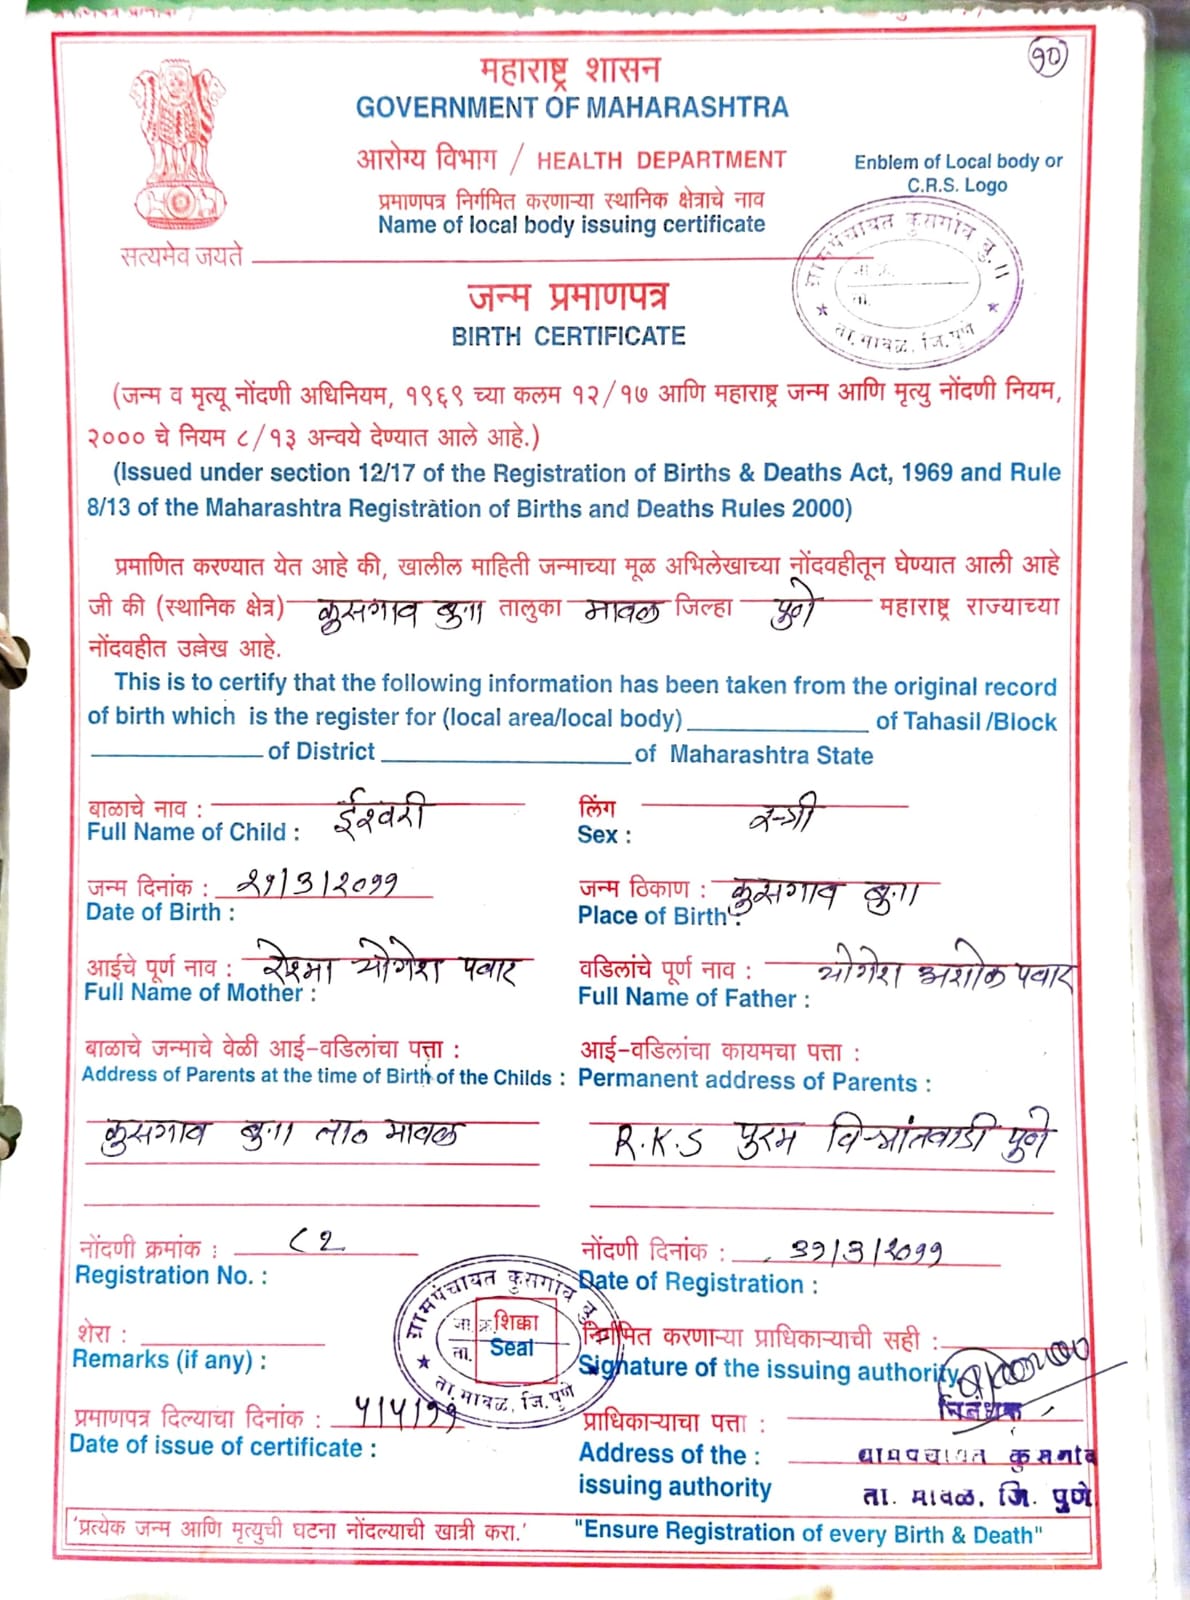 १०
महाराष्ट्र शासन
GOVERNMENT OF MAHARASHTRA
आरोग्य विभाग / HEALTH DEPARTMENT
Enblem of Local body or
C.R.S. Logo
प्रमाणपत्र निर्गमित करणाऱ्या स्थानिक क्षेत्राचे नाव
Name of local body issuing certificate
सत्यमेव जयते
ग्रामपंचायत कुसगांव बु.॥
जा. क्र.
ता.
ता. मावळ, जि. पुणे
जन्म प्रमाणपत्र
BIRTH CERTIFICATE
(जन्म व मृत्यू नोंदणी अधिनियम, १९६९ च्या कलम १२/१७ आणि महाराष्ट्र जन्म आणि मृत्यु नोंदणी नियम,
२००० चे नियम ८/१३ अन्वये देण्यात आले आहे.)
(Issued under section 12/17 of the Registration of Births & Deaths Act, 1969 and Rule
8/13 of the Maharashtra Registration of Births and Deaths Rules 2000)
प्रमाणित करण्यात येत आहे की, खालील माहिती जन्माच्या मूळ अभिलेखाच्या नोंदवहीतून घेण्यात आली आहे
जी की (स्थानिक क्षेत्र) कुसगाव बु॥ तालुका मावळ जिल्हा पुणे महाराष्ट्र राज्याच्या
नोंदवहीत उल्लेख आहे.
This is to certify that the following information has been taken from the original record
of birth which is the register for (local area/local body) of Tahasil /Block
of District of Maharashtra State
बाळाचे नाव : ईश्वरी लिंग स्त्री
Full Name of Child : Sex :
जन्म दिनांक : २१/३/२०११ जन्म ठिकाण : कुसगाव बु॥
Date of Birth : Place of Birth :
आईचे पूर्ण नाव : रेश्मा योगेश पवार वडिलांचे पूर्ण नाव : योगेश अशोक पवार
Full Name of Mother : Full Name of Father :
बाळाचे जन्माचे वेळी आई-वडिलांचा पत्ता : आई-वडिलांचा कायमचा पत्ता :
Address of Parents at the time of Birth of the Childs : Permanent address of Parents :
कुसगाव बु॥ ता० मावळ R.K.S पुरम विश्रांतवाडी पुणे
नोंदणी क्रमांक : ८२ नोंदणी दिनांक : ३१/३/२०११
Registration No. : Date of Registration :
ग्रामपंचायत कुसगांव बु
जा. क्र. शिक्का
ता. Seal
ता. मावळ, जि. पुणे
शेरा : निर्गमित करणाऱ्या प्राधिकाऱ्याची सही :
Remarks (if any) : Signature of the issuing authority
प्रमाणपत्र दिल्याचा दिनांक : ५/५/११ प्राधिकाऱ्याचा पत्ता :
Date of issue of certificate : Address of the : ग्रामपंचायत कुसगांव
issuing authority ता. मावळ, जि. पुणे
'प्रत्येक जन्म आणि मृत्युची घटना नोंदल्याची खात्री करा.' "Ensure Registration of every Birth & Death"